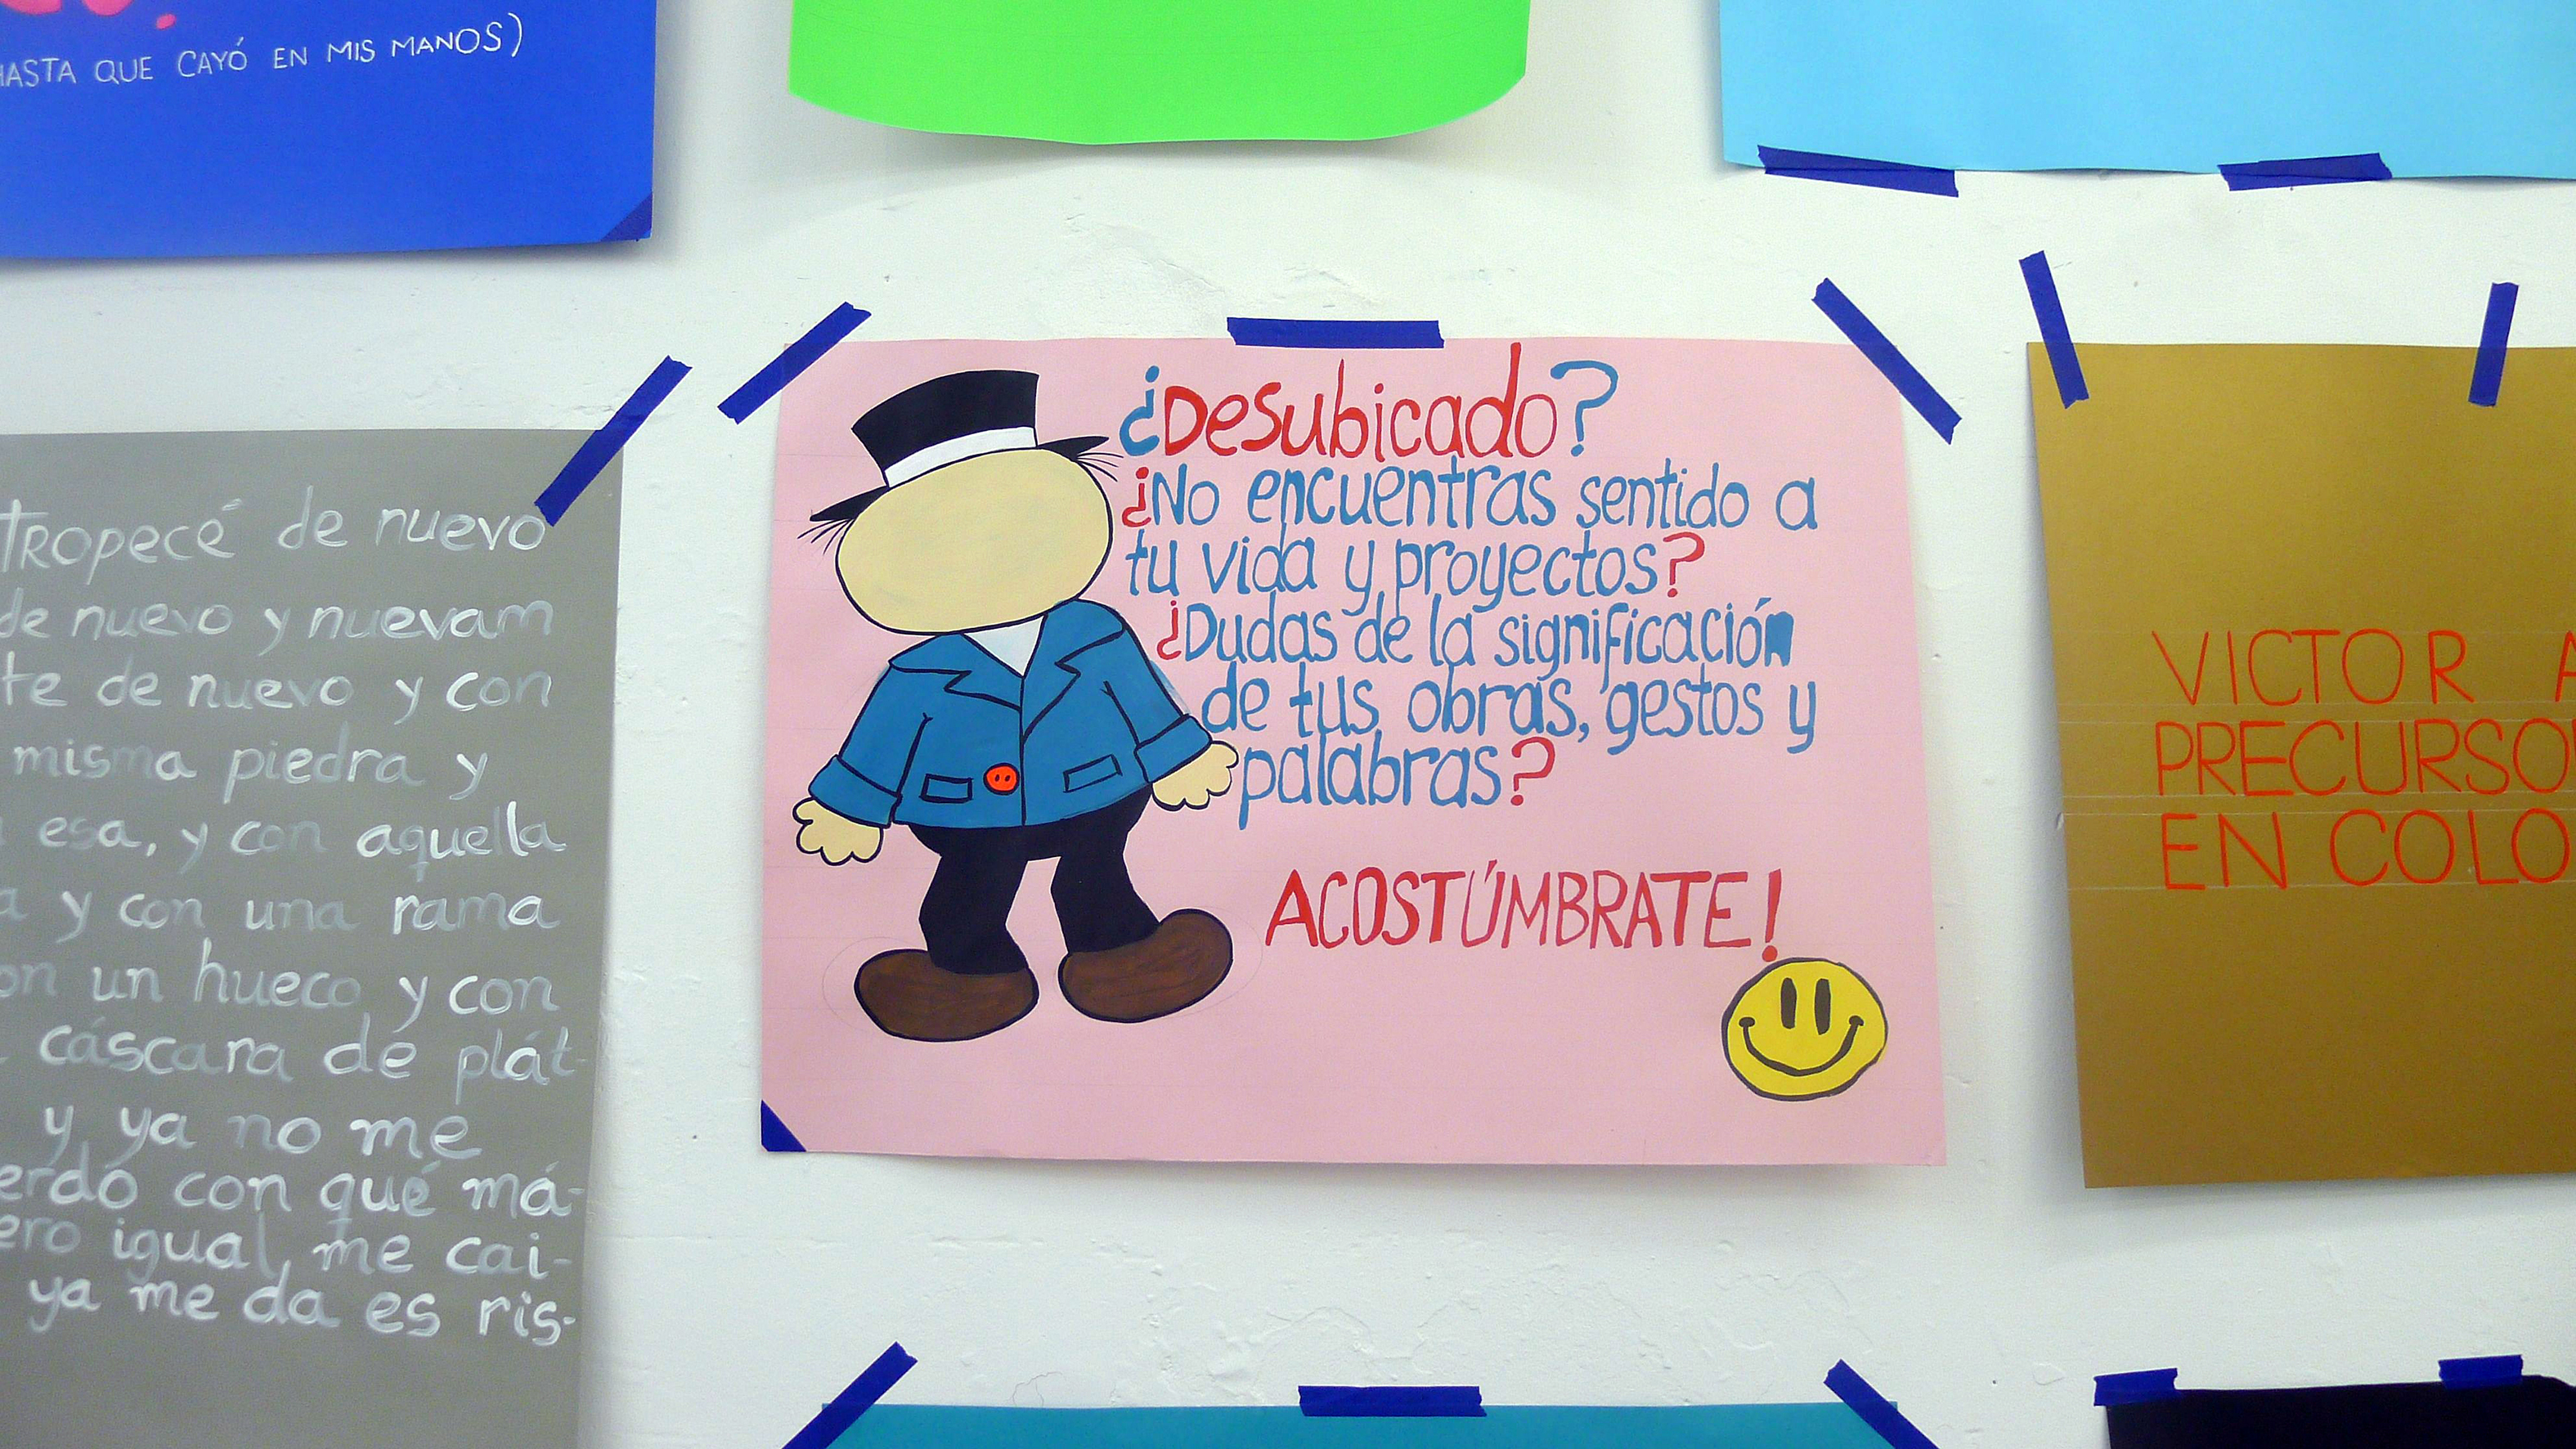 HASTA QUE CAYÓ EN MIS MANOS)
TROPECÉ de nuevo
de nuevo y nuevam
te de nuevo y con
misma piedra y
esa, y con aquella
y con una rama
un hueco y con
cáscara de plát-
y ya no me
con qué má-
igual, me cai-
ya me da es ris-
¿Desubicado?
¿No encuentras sentido a
tu vida y proyectos?
¿Dudas de la significación
de tus obras, gestos y
palabras?
ACOSTÚMBRATE!
VICTOR A
PRECURSO
EN COLO